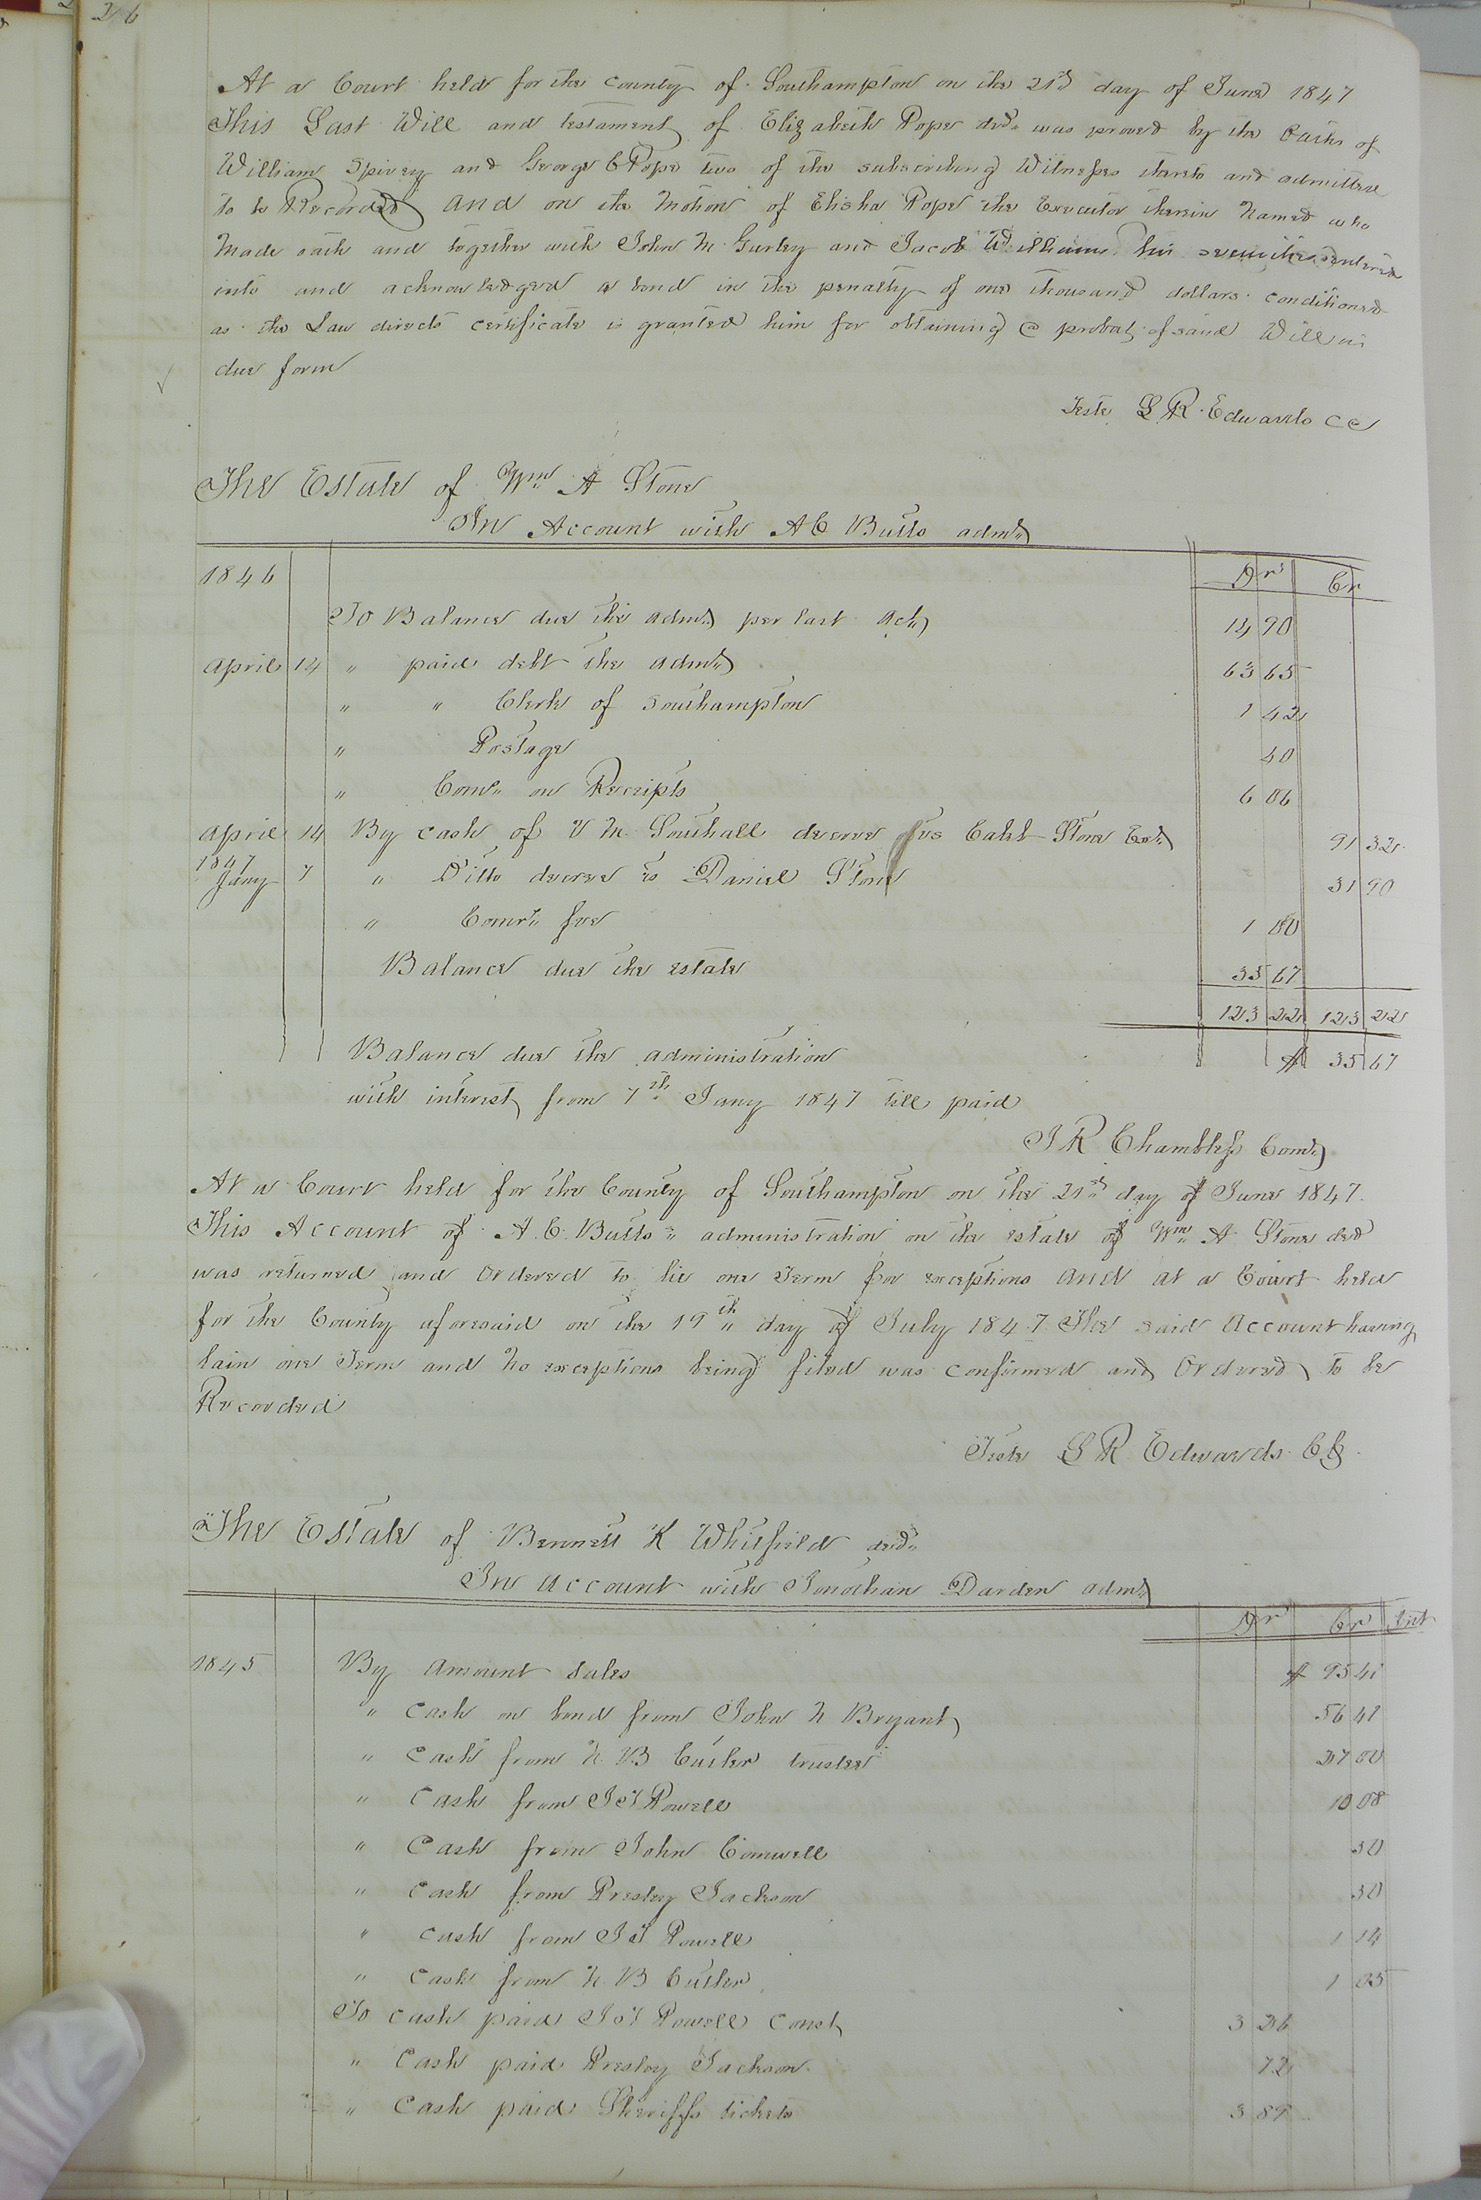 216
At a Court held for the County of Southampton on the 21st day of June 1847
This Last Will and testament of Elizabeth Pope decd. was proved by the Oaths of
William Spivey and George C Pope two of the subscribing Witnesses thereto and admitted
to be Recorded And on the Motion of Elisha Pope the Executor therein Named who
Made oath and together with John M. Gurley and Jacob Williams his securities entered
into and acknowledged a bond in the penalty of one thousand dollars conditioned
as the Law directs certificate is granted him for obtaining a probat of said Will in
due form
Teste L R Edwards CC
The Estate of Wm A Stone
In Account with A C Butts adm.
1846 Dr Cr
To Balance due the adm. per last act. 14 90
April 14 " paid debt the adm. 63 65
" " Clerk of Southampton 1 42
" Postage 40
" Com. on Receipts 6 06
April 14 By cash of M. Southall decree vs Stone 91 32
1847
Jany 7 " Ditto decree vs Daniel Stone 31 90
" Comr. fee 1 00
Balance due the estate 35 67
123 22 123 22
Balance due the administration $ 35 67
with interest from 7th Jany 1847 till paid
J R Chambless Com.
At a Court held for the County of Southampton on the 21st day of June 1847.
This Account of A. C. Butts administration on the estate of Wm A Stone decd
was returned and Ordered to lie one Term for exceptions And at a Court held
for the County aforesaid on the 19th day of July 1847. The said Account having
lain one Term and No exceptions being filed was confirmed and Ordered to be
Recorded
Teste L R Edwards CC
The Estate of Bennett K Whitfield decd.
In Account with Jonathan Darden adm.
Dr Cr Int
1845 By Amount Sales $ 95 41
" Cash on bond from John N Bryant 56 41
" Cash from N. B Cutler trustee 27 00
" Cash from J T Powell 10 08
" Cash from John 30
" Cash from Presley Jackson 30
" Cash from J T Powell 1 14
" Cash from N. B Cutler 1 05
To Cash paid J T Powell Const 3 26
" Cash paid Presley Jackson 72
" Cash paid Sheriffs tickets 3 89